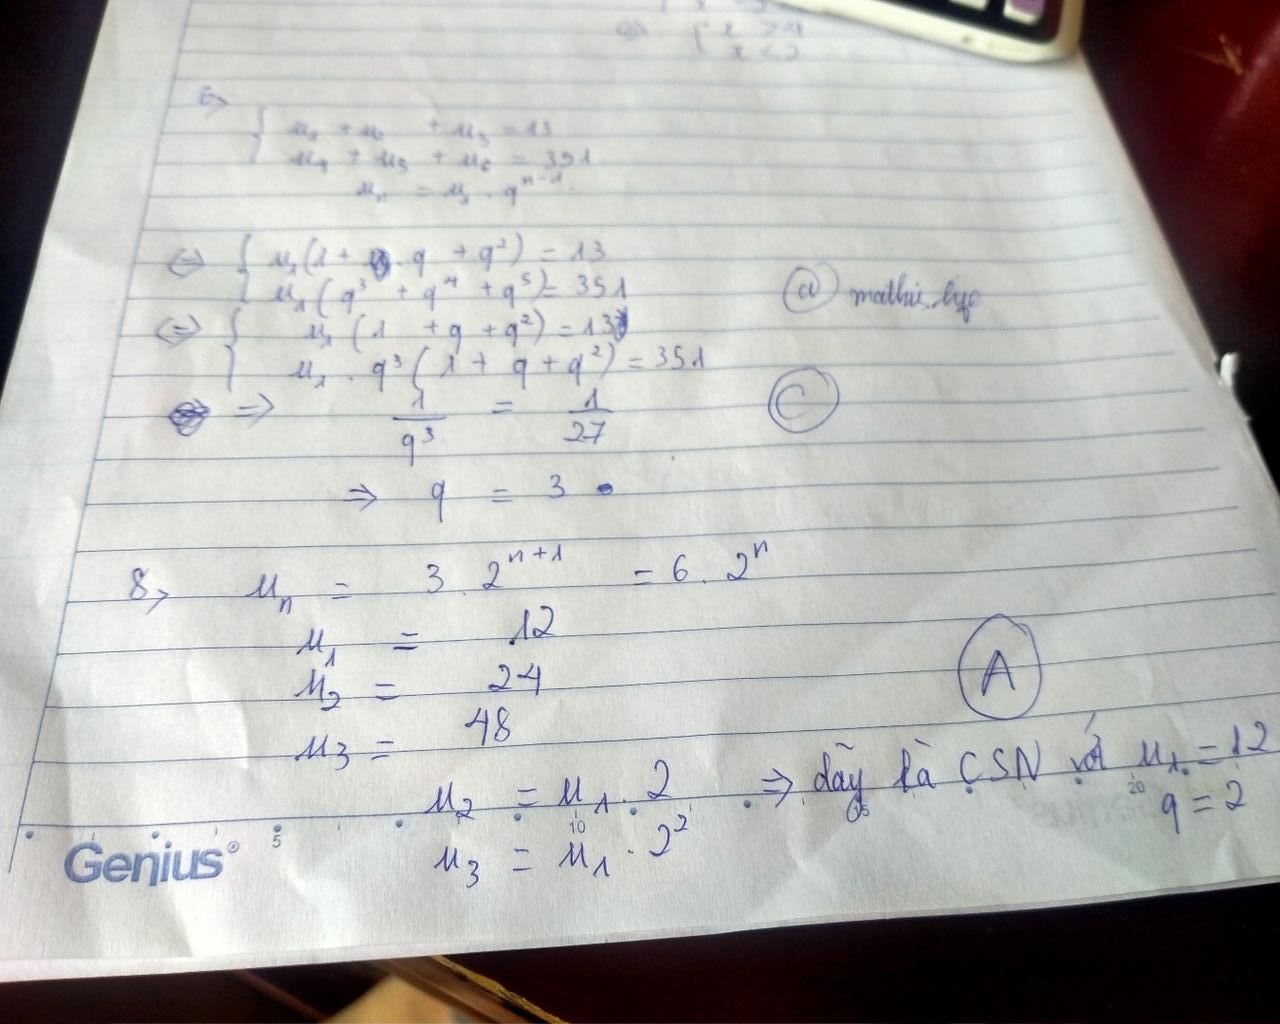 x > 4
x < 2
6>
u₁ + u₂ + u₃ = 13
u₄ + u₅ + u₆ = 351
uₙ = u₁ . qⁿ⁻¹
⇔ { u₁(1 + . q + q²) = 13
u₁(q³ + q⁴ + q⁵) = 351
@ mathis.lye
⇔ { u₁(1 + q + q²) = 13
u₁ . q³(1 + q + q²) = 351
⇒ 1/q³ = 1/27
C
⇒ q = 3
8> uₙ = 3 . 2ⁿ⁺¹ = 6 . 2ⁿ
u₁ = 12
u₂ = 24
A
u₃ = 48
u₂ = u₁ . 2 ⇒ dãy là CSN với u₁ = 12
u₃ = u₁ . 2² q = 2
Genius® 5 10 15 20